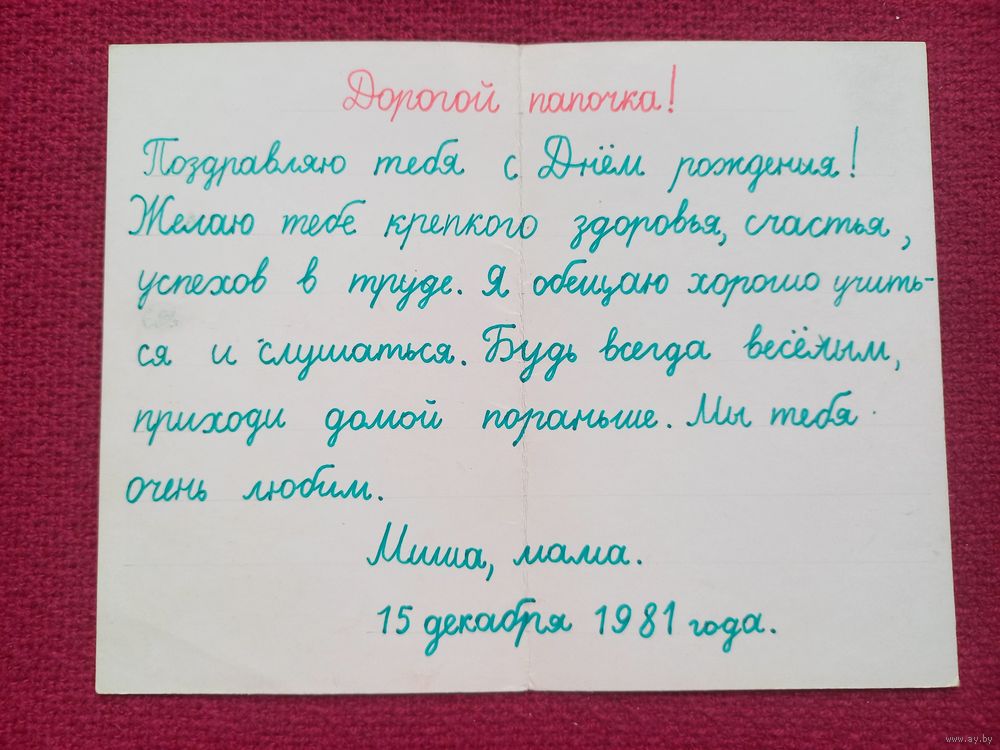 Дорогой папочка!
Поздравляю тебя с Днём рождения!
Желаю тебе крепкого здоровья, счастья,
успехов в труде. Я обещаю хорошо учить-
ся и слушаться. Будь всегда весёлым,
приходи домой пораньше. Мы тебя
очень любим.
Миша, мама.
15 декабря 1981 года.
www.ay.by